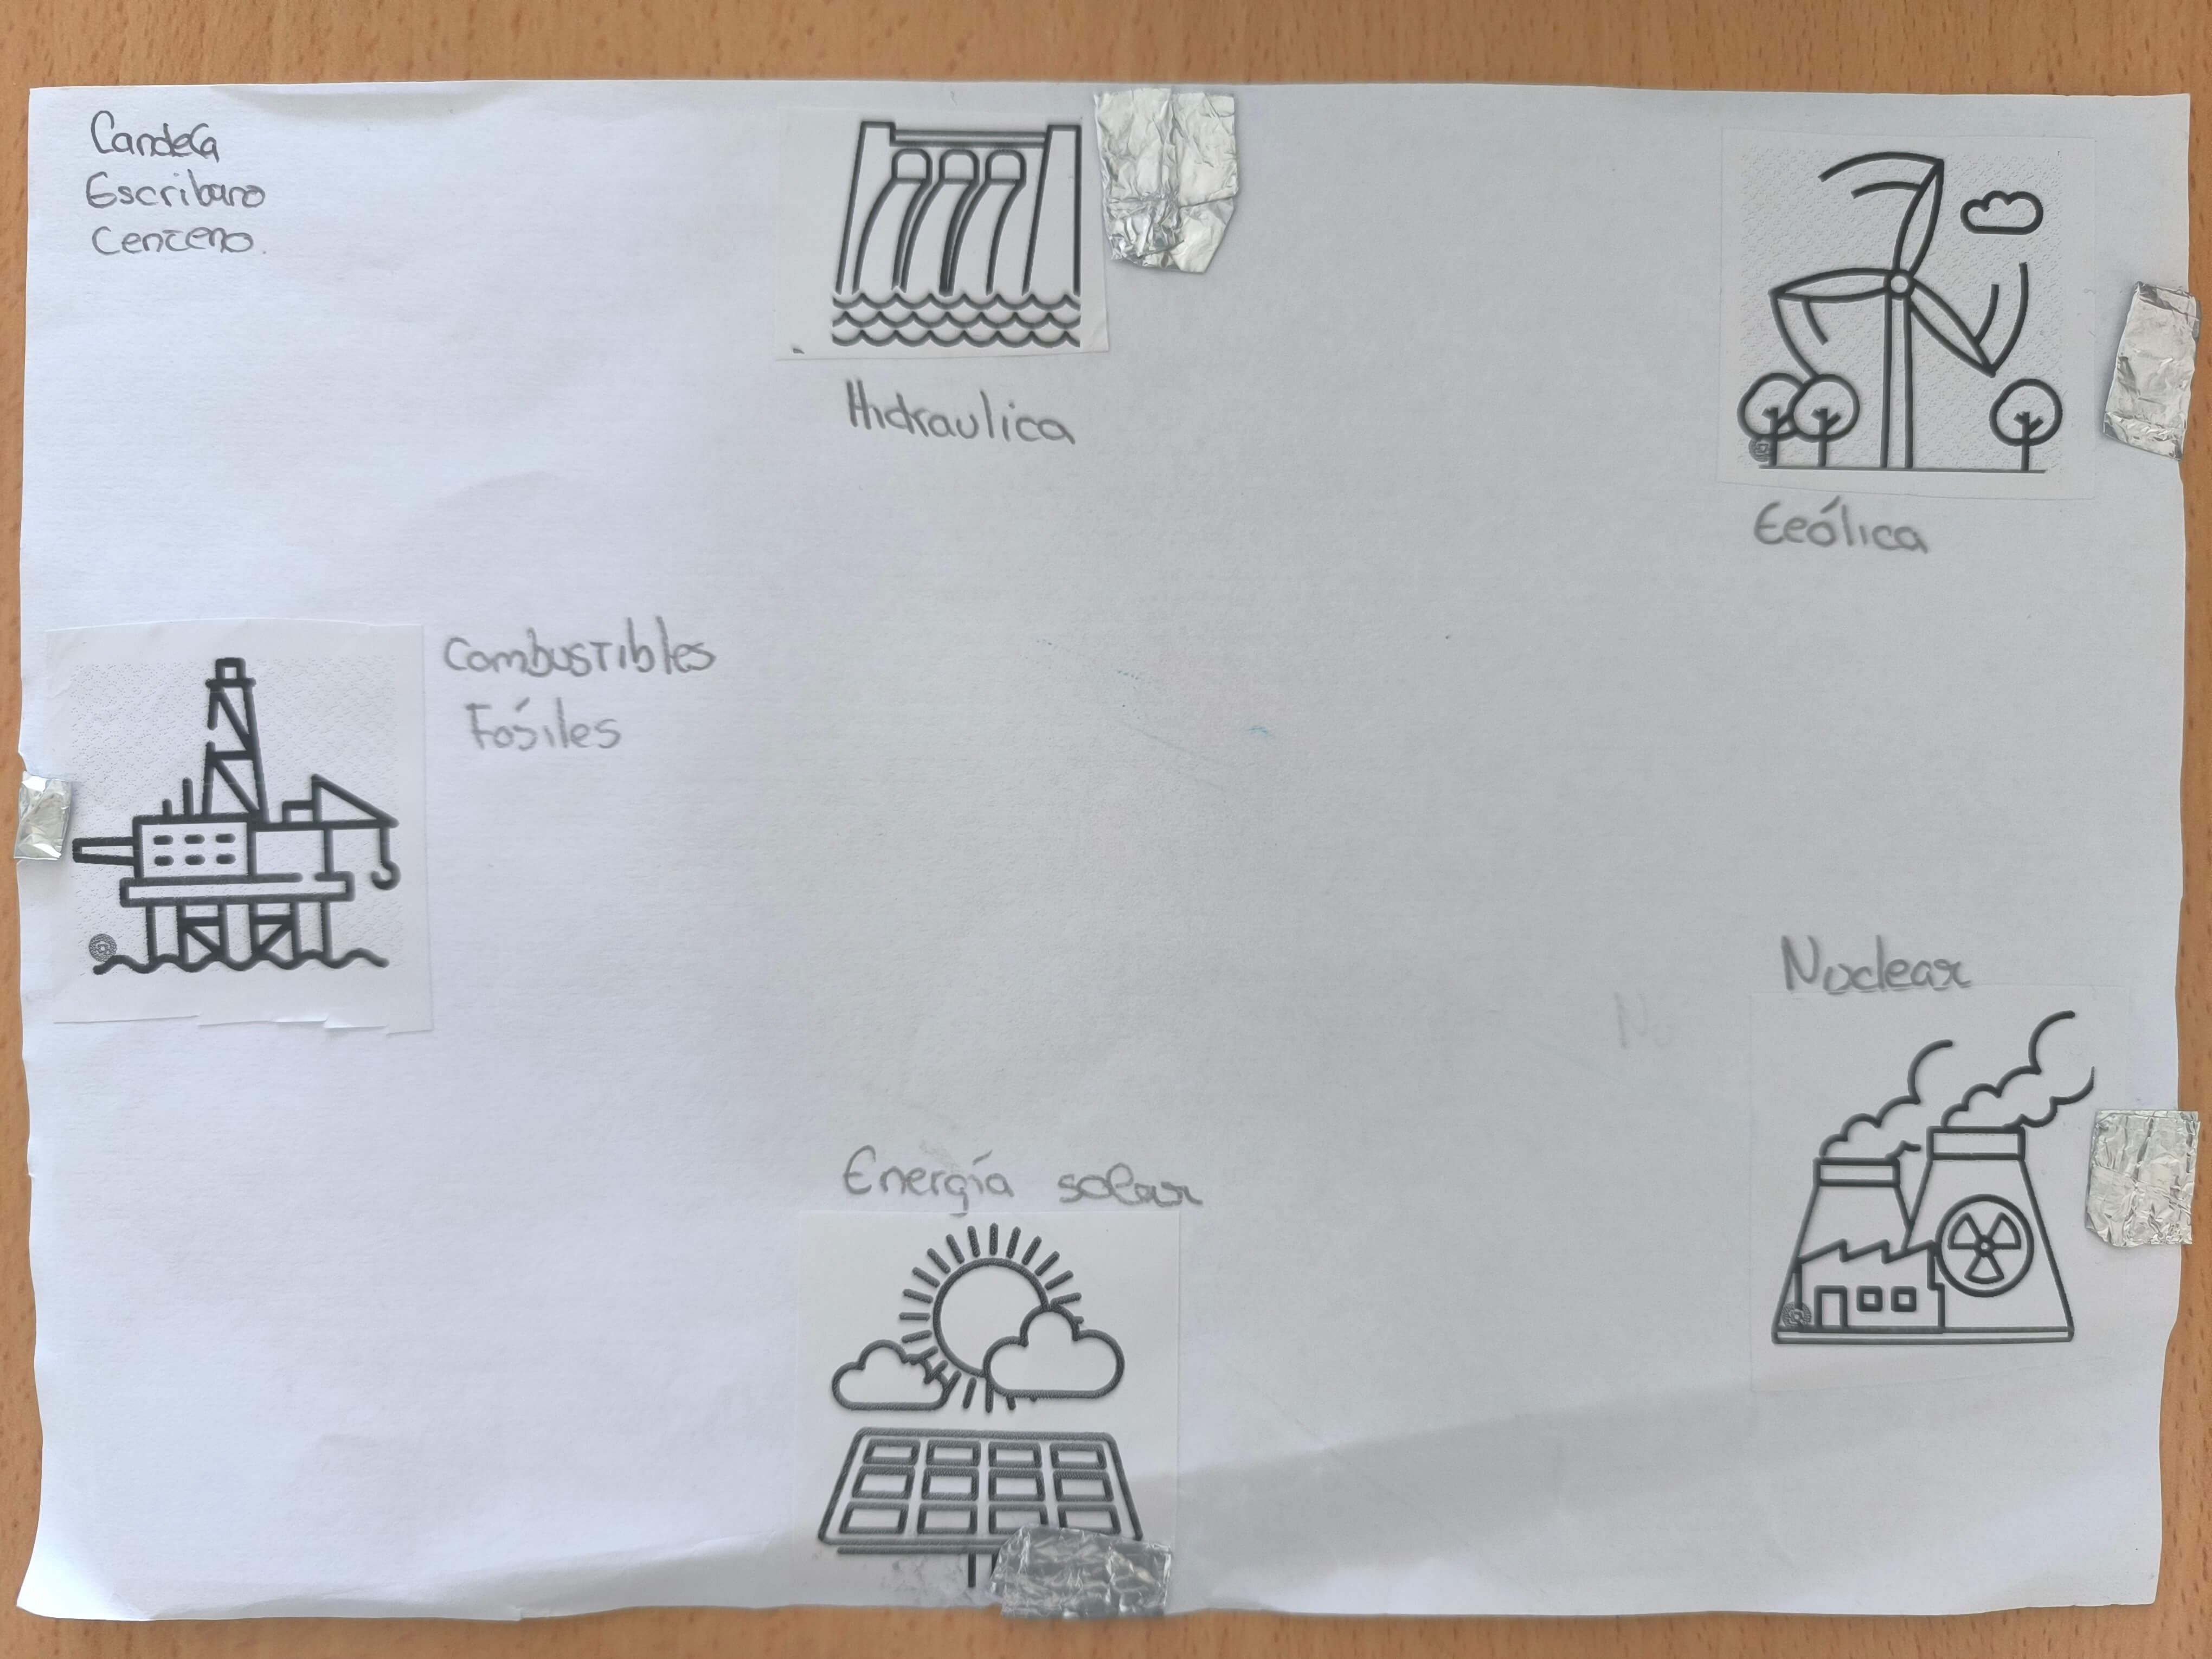 Candela
Escribano
Centeno.
Hidraulica
Eeólica
Combustibles
Fósiles
Nuclear
No
Energía solar